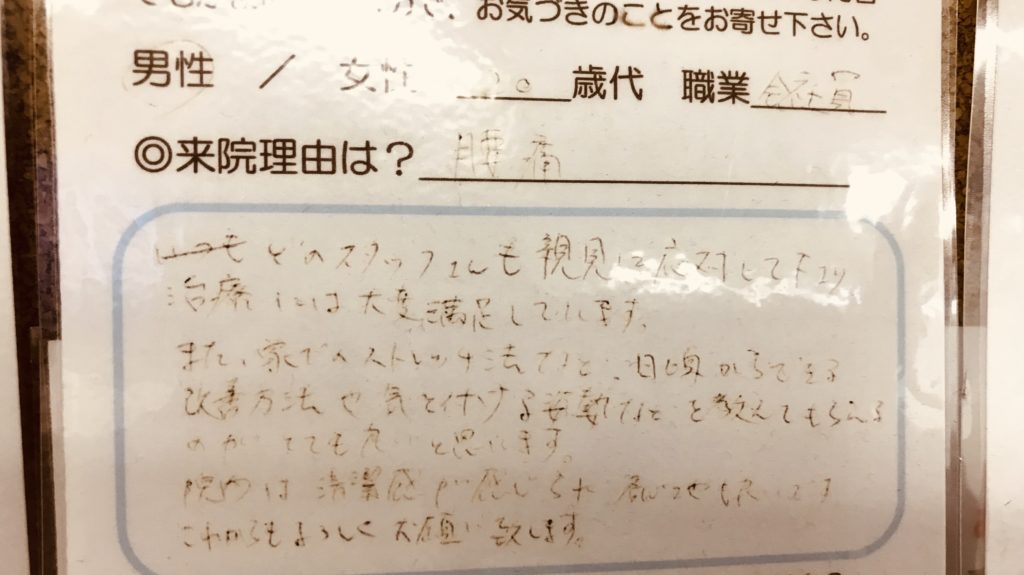 お気づきのことをお寄せ下さい。
男性 / 女性 歳代 職業 会社員
◎来院理由は? 腰痛
どのスタッフさんも親見に応対して下さり
治療には大変満足しています。
また、家でのストレッチ法など、日頃からできる
改善方法や気を付ける姿勢などを教えてもらえる
のがとても良いと思います。
院内は清潔感が感じられ 居心地も良いです
これからもよろしくお願い致します。